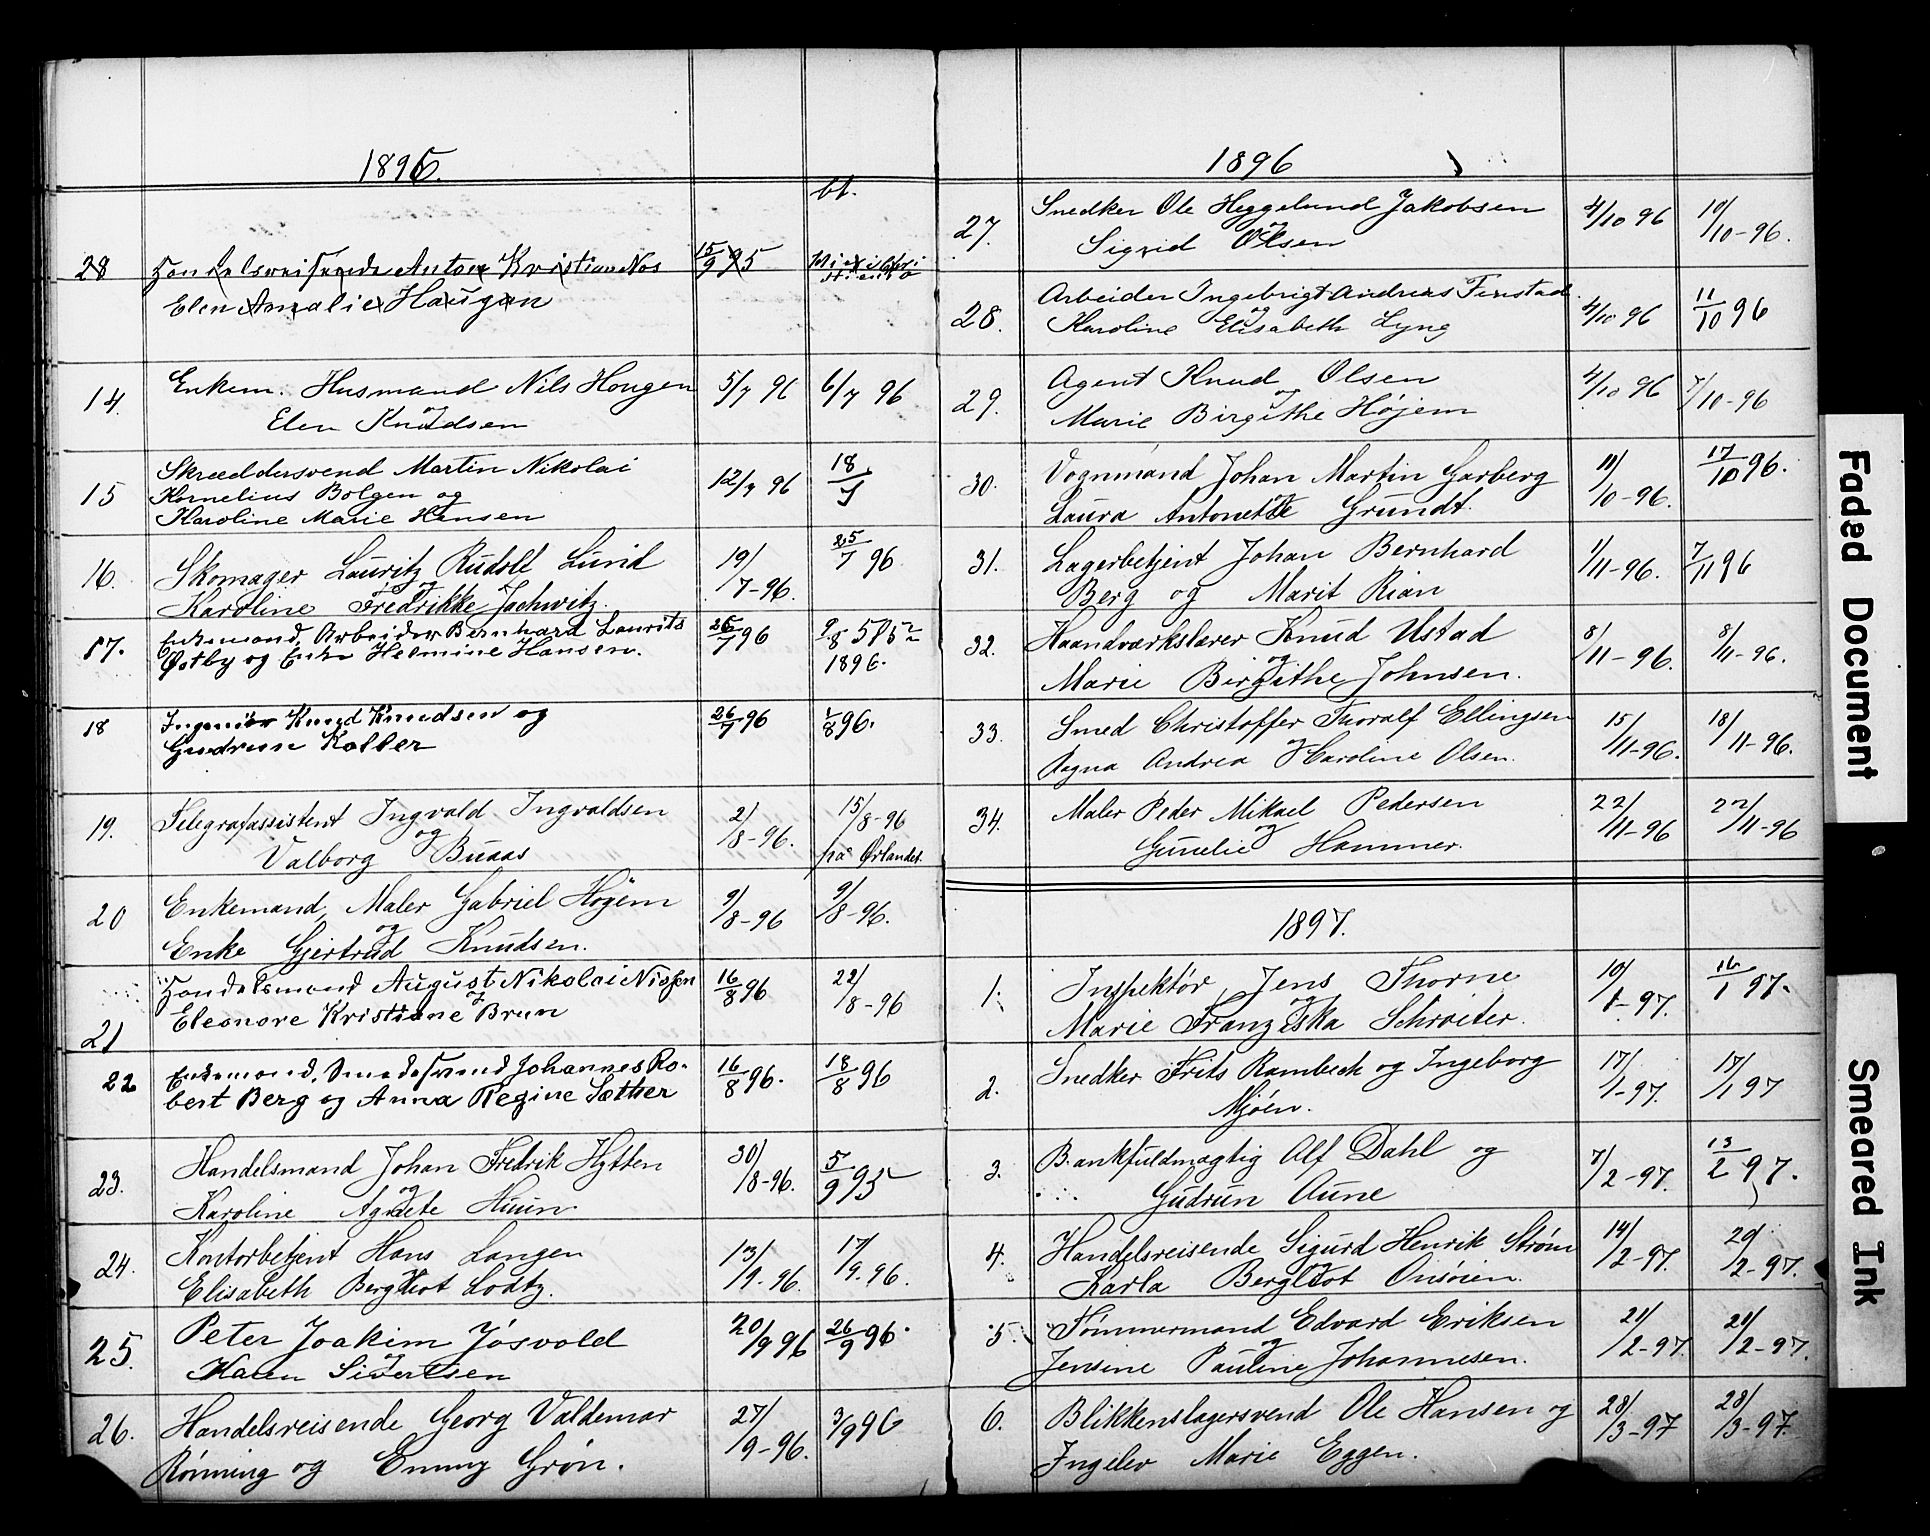 1896.
bt.
28 Handelsreisende Anton Kristian Nos 15/9 95
Elen Amalie Haugan
14. Enkem. Husmand Nils Hougen 5/7 96 6/7 96
og
Elen Knudsen
15 Skræddersvend Martin Nikolai 12/7 96 18/7
Kornelius Bolgen og
Karoline Marie Hansen
16. Skomager Lauritz Rudolf Lund 19/7-96. 25/7 96
og
Karoline Fredrikke Jachwitz.
17. Enkemand, Arbeider Bernhard Laurits 26/7 96 9/8 5 1896.
Østby og Enke Helmine Hansen.
18 Ingeniør Knud Knudsen og 26/7 96 1/8 96.
Gudrun Kolber
19. Telegrafassistent Ingvald Ingvaldsen 2/8-96. 15/8-96
og
Valborg Buaas på Ørlandet.
20 Enkemand, Maler Gabriel Højem 9/8-96 9/8-96.
og
Enke Gjertrud Knudsen.
21 Handelsmand August Nikolai Nissen 16/8 96 22/8-96
og
Eleonore Kristiane Brun
22 Enkemand, Smedesvend Johannes Ro- 16/8 96. 18/8 96
bert Berg og Anna Regine Sæther
23. Handelsmand Johan Fredrik Hytten 30/8-96. 5/9 95
og
Karoline Agnete Huun.
24. Kontorbetjent Hans Langen 13/9-96. 17/9.96.
og
Elisabeth Bergliot Lodtz.
25. Peter Joakim Jøsvold 20/9 96 26/9 96.
og
Karen Sivertsen
26. Handelsreisende Georg Valdemar 27/9-96. 3/9 96
Rønning og Emmy Grøn.
1896
27. Snedker Ole Heggelund Jakobsen 4/10 96 10/10-96.
og
Sigrid Olsen
28. Arbeider Ingebrigt Andreas Finstad 4/10 96 11/10 96
og
Karoline Elisabeth Lyng
29. Agent Knud Olsen 4/10 96 7/10-96
og
Marie Birgithe Højem
30. Vognmand Johan Martin Garberg 11/10-96. 17/10 96.
og
Laura Antonette Grundt.
31. Lagerbetjent Johan Bernhard 1/11-96. 7/11 96
Berg og Marit Rian
32. Haandværkslærer Knud Ustad 8/11-96. 8/11-96.
og
Marie Birgithe Johnsen.
33. Smed Christoffer Thoralf Ellingsen 15/11-96. 18/11-96.
og
Ragna Andrea Karoline Olsen.
34. Maler Peder Mikael Pedersen 22/11-96 22/11-96
og
Gunelie Hammer.
1897.
1. Inspektør, Jens Thorne 10/1-97. 16/1 97.
og
Marie Franziska Schrøiter.
2. Snedker Frits Rambech og Ingeborg 17/1-97. 17/1 97
Mjøen.
3. Bankfuldmægtig Alf Dahl og 7/2-97. 13/2 97.
Gudrun Aune
4. Handelsreisende Sigurd Henrik Strøm 14/2-97. 20/2-97.
og
Karla Bergliot Onsøien.
5. Tømmermand Edvard Eriksen 21/2-97. 21/2-97.
og
Jensine Pauline Johannesen.
6. Blikkenslagersvend Ole Hansen og 28/3-97 28/3-97.
Ingelev Marie Eggen.
Faded Document
Smeared Ink